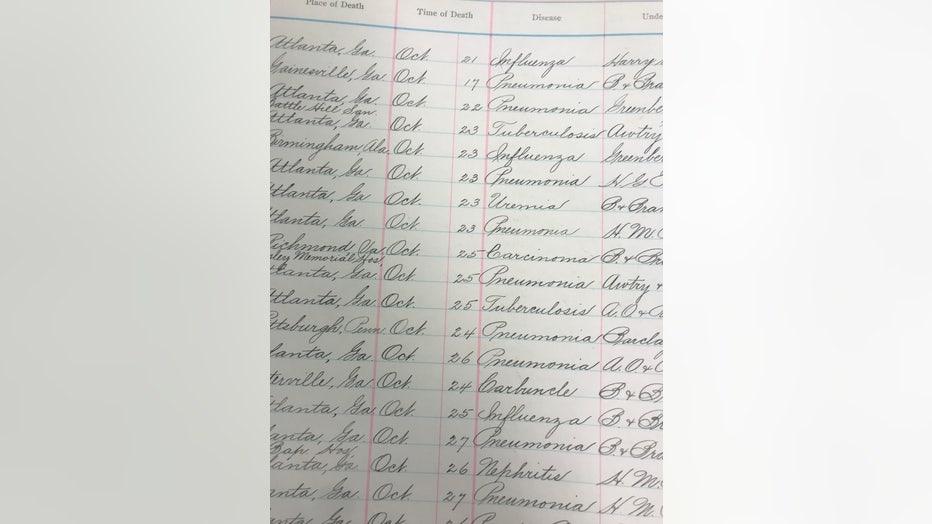 Place of Death Time of Death Disease Unde
Atlanta, Ga. Oct. 21 Influenza Harry
Gainesville, Ga Oct. 17 Pneumonia B. & Bra
Atlanta, Ga. Oct. 22 Pneumonia Greenbe
Battle Hill San.
Atlanta, Ga. Oct. 23 Tuberculosis Awtry
Birmingham, Ala. Oct. 23 Influenza Greenbe
Atlanta, Ga. Oct. 23 Pneumonia H. G.
Atlanta, Ga Oct. 23 Uremia B. & Bran
tlanta, Ga. Oct. 23 Pneumonia H. M.
Richmond, Va. Oct. 25 Carcinoma B. & Br
sley Memorial Hos.
tlanta, Ga. Oct. 25 Pneumonia Awtry &
Atlanta, Ga. Oct. 25 Tuberculosis A. O. &
ittsburgh, Penn. Oct. 24 Pneumonia Barcla
lanta, Ga. Oct. 26 Pneumonia A. O. &
terville, Ga. Oct. 24 Carbuncle B. & B
tlanta, Ga. Oct. 25 Influenza B. & Br
anta, Ga. Oct. 27 Pneumonia B. & Bra
Bap Hos.
lanta, Ga. Oct. 26 Nephritis H. M.
anta, Ga. Oct. 27 Pneumonia H. M.
anta, Ga Oct.